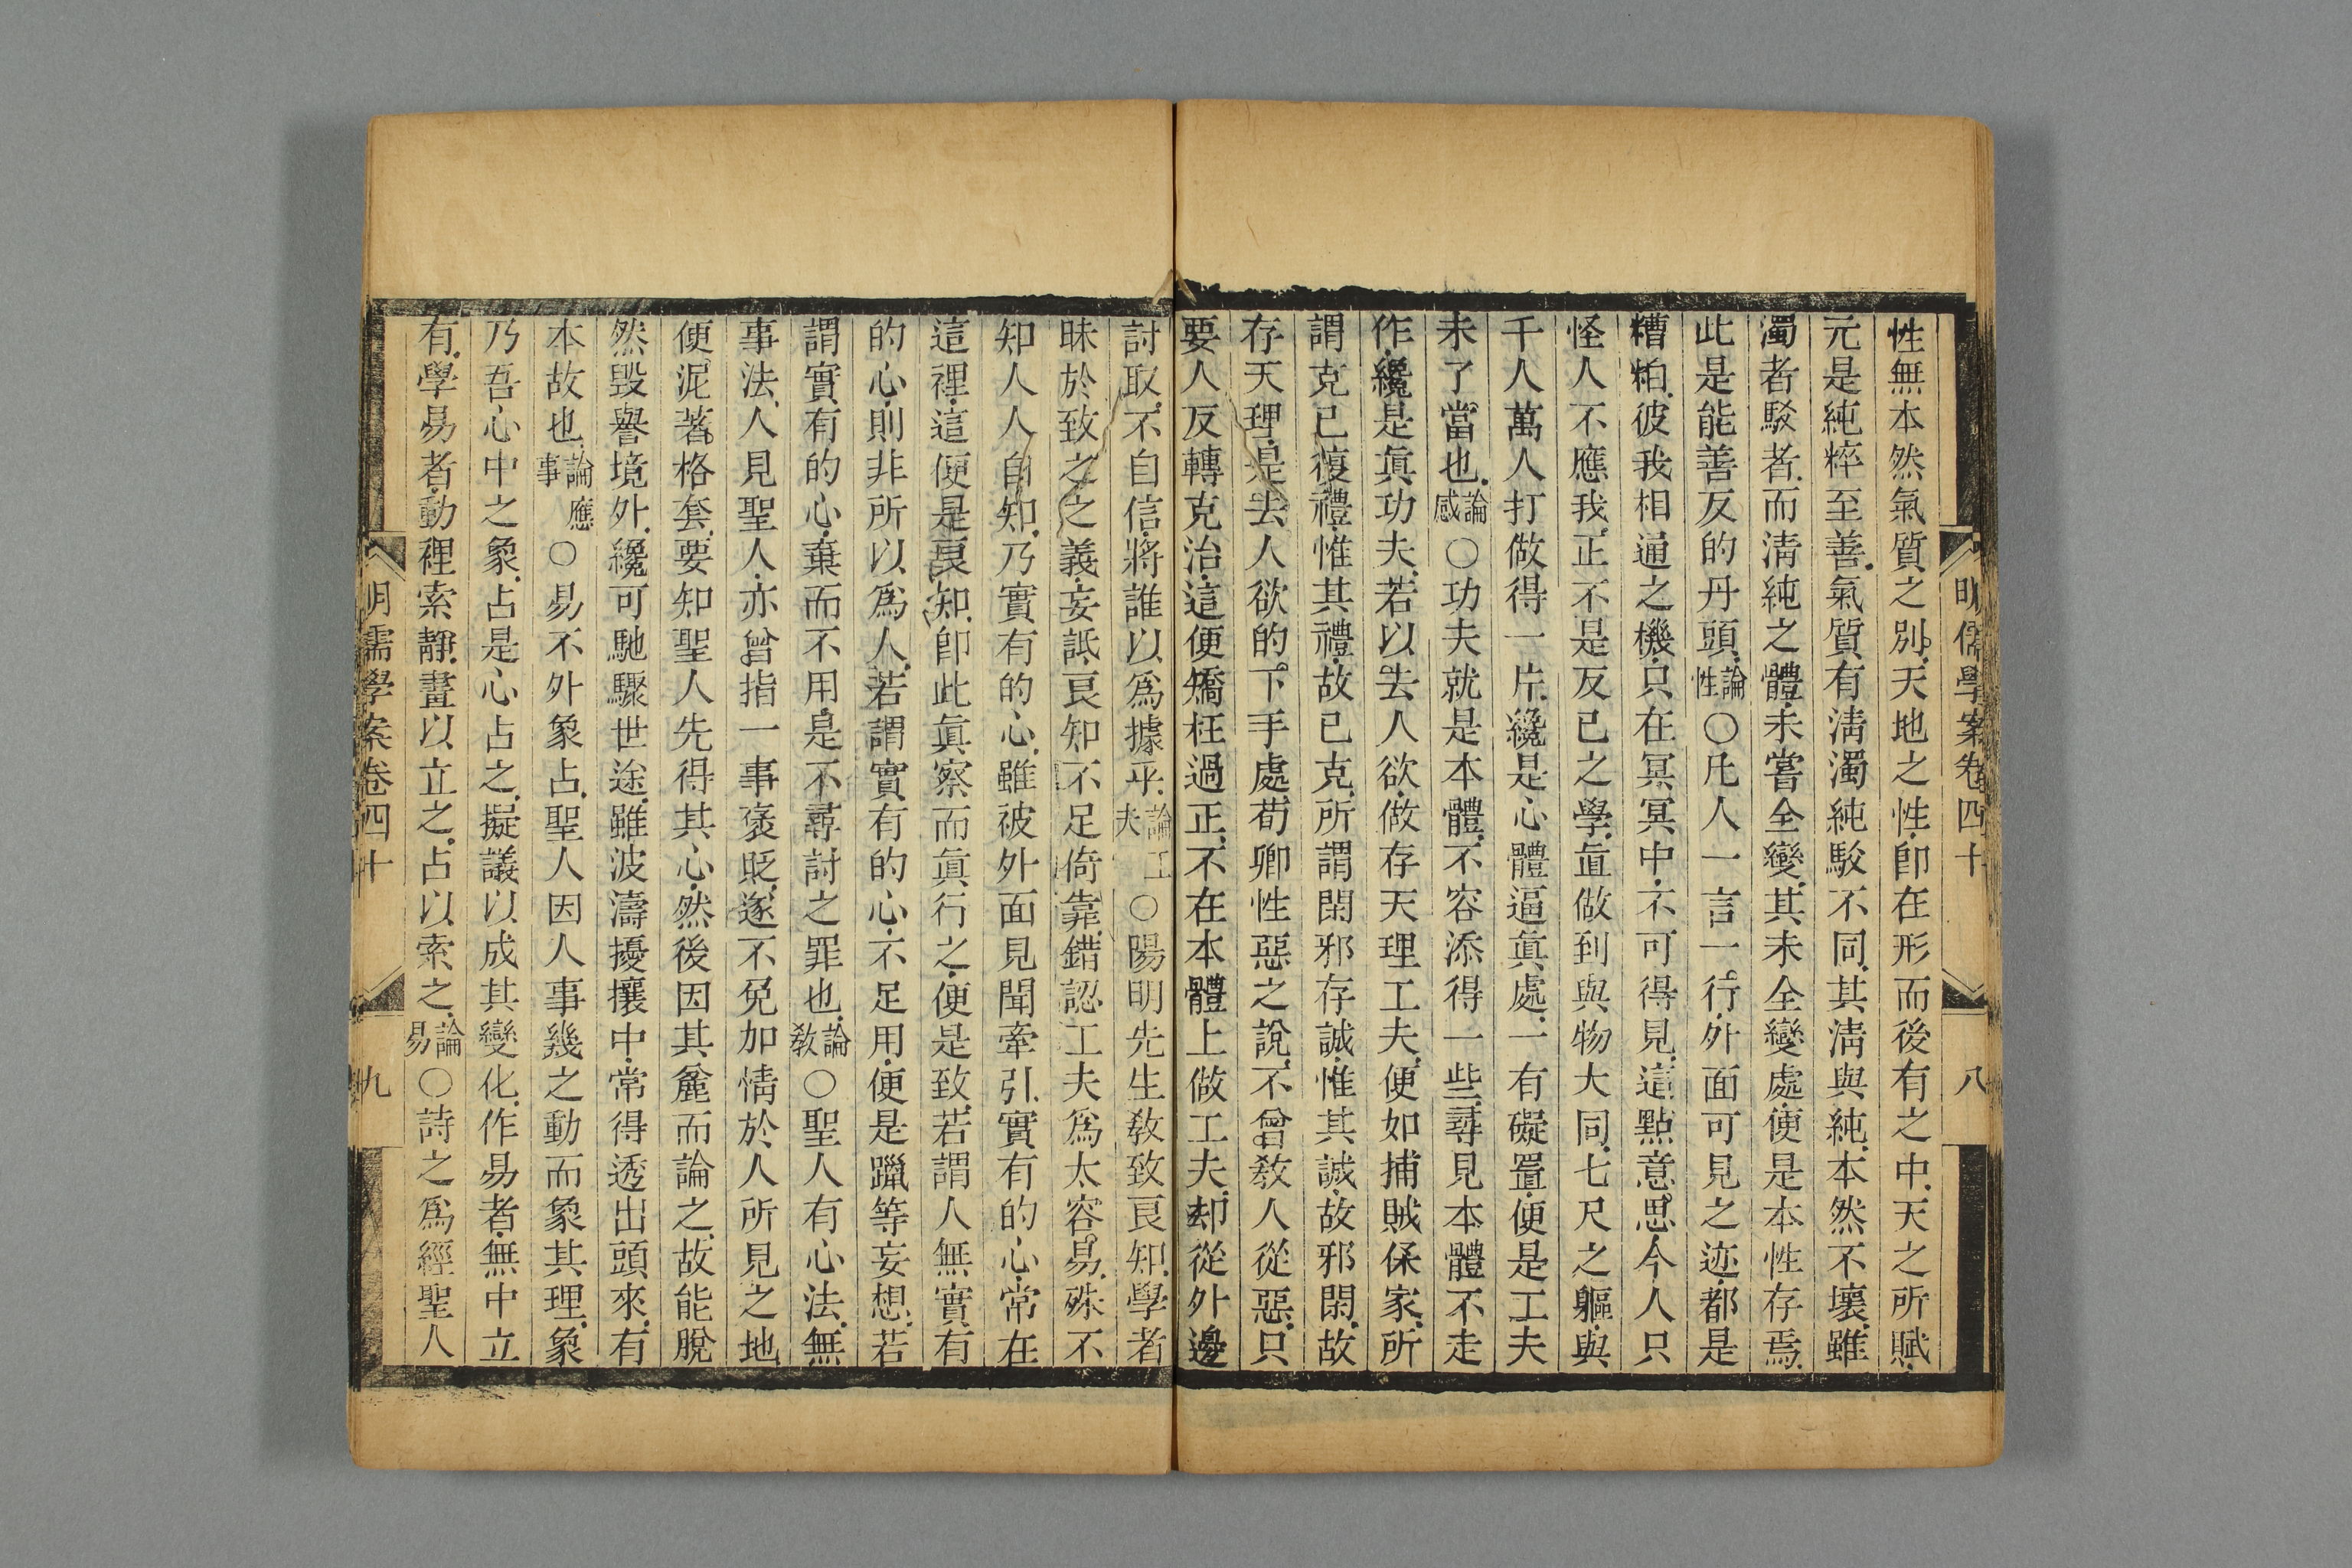 明儒學案卷四十 八
性無本然氣質之別天地之性卽在形而後有之中天之所賦
元是純粹至善氣質有淸濁純駁不同其淸與純本然不壞雖
濁者駁者而淸純之體未嘗全變其未全變處便是本性存焉
此是能善反的丹頭論性○凡人一言一行外面可見之迹都是
糟粕彼我相通之機只在冥冥中不可得見這點意思今人只
怪人不應我正不是反已之學直做到與物大同七尺之軀與
千人萬人打做得一片纔是心體逼眞處一有礙置便是工夫
未了當也論感○功夫就是本體不容添得一些尋見本體不走
作纔是眞功夫若以去人欲做存天理工夫便如捕賊保家所
謂克已復禮惟其禮故已克所謂閑邪存誠惟其誠故邪閑故
存天理是去人欲的下手處荀卿性惡之說不曾敎人從惡只
要人反轉克治這便矯枉過正不在本體上做工夫却從外邊
討取不自信將誰以爲據乎論工夫○陽明先生敎致良知學者
昧於致之之義妄詆良知不足倚靠錯認工夫爲太容易殊不
知人人自知乃實有的心雖被外面見聞牽引實有的心常在
這裡這便是良知卽此眞察而眞行之便是致若謂人無實有
的心則非所以爲人若謂實有的心不足用便是躐等妄想若
謂實有的心棄而不用是不尋討之罪也論敎○聖人有心法無
事法人見聖人亦曾指一事褒貶遂不免加情於人所見之地
便泥著格套要知聖人先得其心然後因其麄而論之故能脫
然毀譽境外纔可馳驟世途雖波濤擾攘中常得透出頭來有
本故也論應事○易不外象占聖人因人事幾之動而象其理象
乃吾心中之象占是心占之擬議以成其變化作易者無中立
有學易者動裡索靜畫以立之占以索之論易○詩之爲經聖人
明儒學案卷四十 九